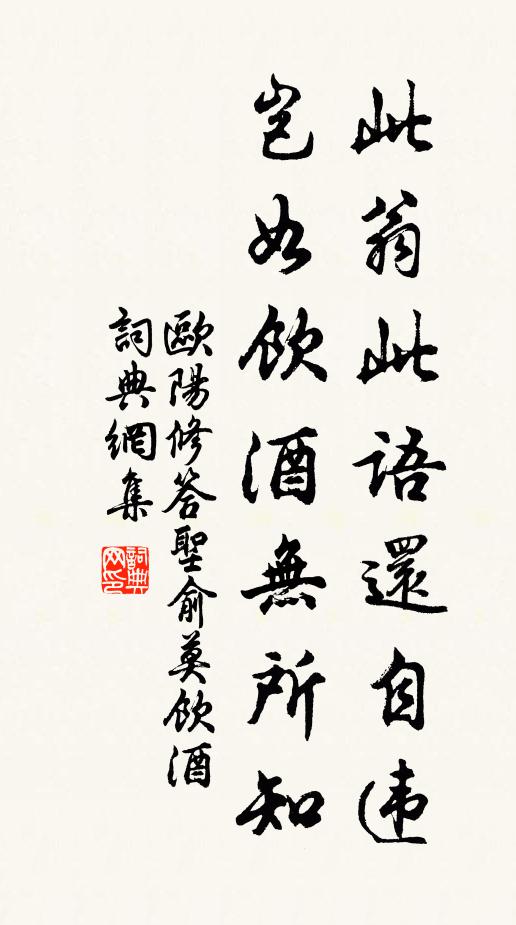 此翁此語還自違
豈如飲酒無所知
歐陽修答聖俞莫飲酒
詞典網集
詞典网印